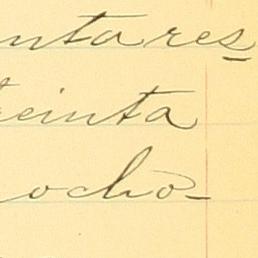 ntares
treinta
ocho-